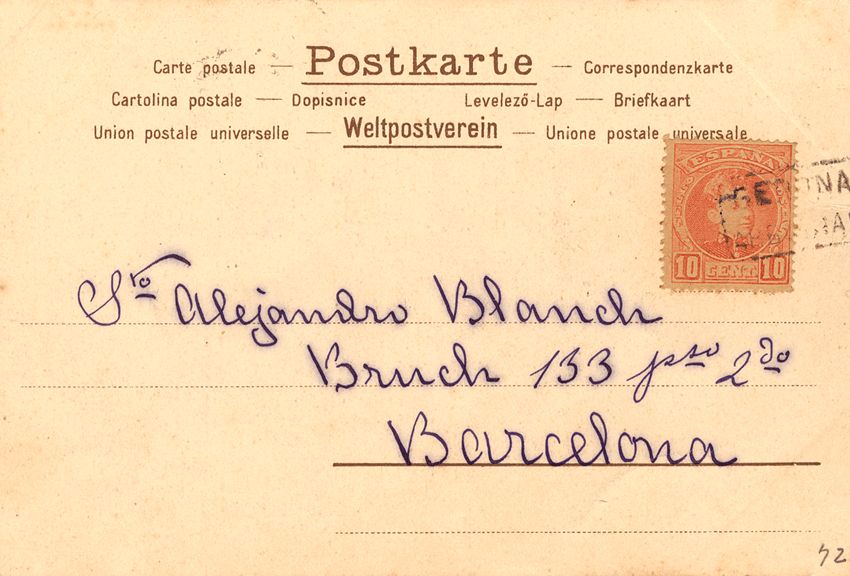 Carte postale — Postkarte — Correspondenzkarte
Cartolina postale — Dopisnice Levelező-Lap — Briefkaart
Union postale universelle — Weltpostverein — Unione postale universale
ESPAÑA
10 CENT 10
Sro Alejandro Blanch
Bruch 133 pso 2do
Barcelona
42